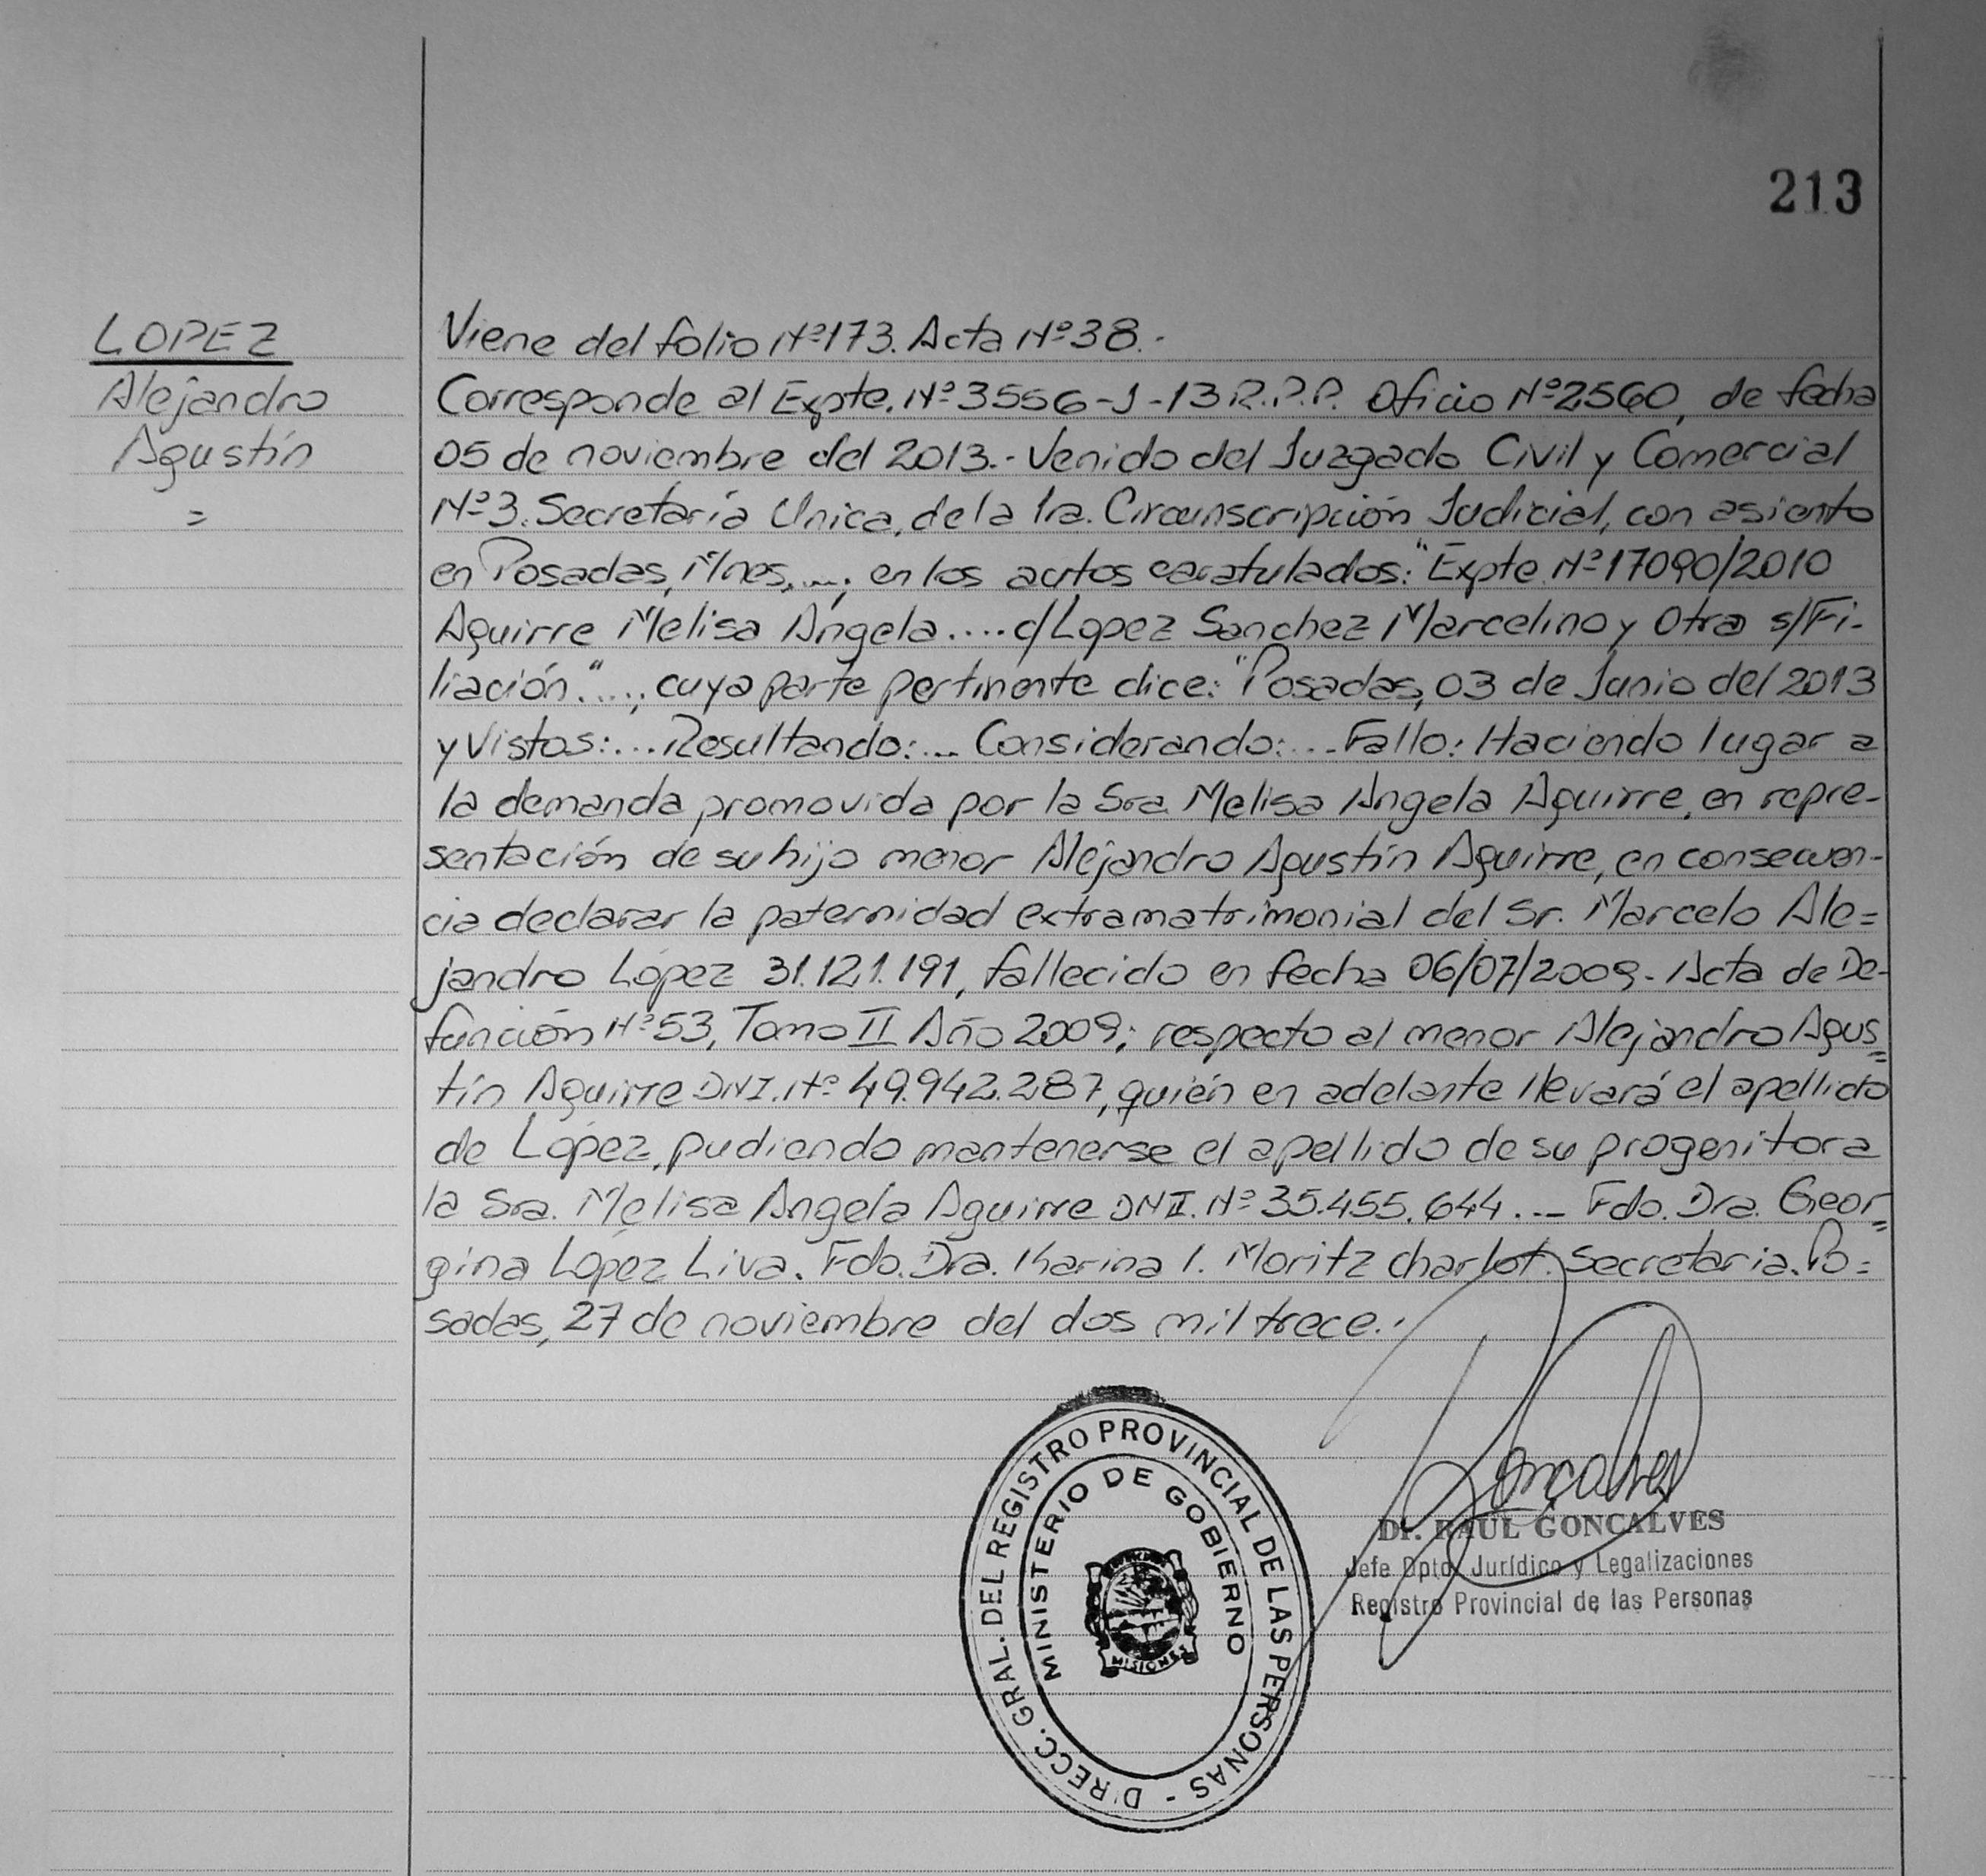 213
LOPEZ
Alejandro
Agustín
=
Viene del folio Nº173. Acta Nº38.-
Corresponde al Expte. Nº3556-J-13 R.P.P. Oficio Nº2560, de fecha
05 de noviembre del 2013.- Venido del Juzgado Civil y Comercial
Nº3. Secretaría Unica, de la 1ra. Circunscripción Judicial, con asiento
en Posadas, Mnes,...; en los autos caratulados: "Expte. Nº17090/2010
Aguirre Melisa Angela....c/Lopez Sanchez Marcelino y Otra s/Fi-
liación."...., cuya parte pertinente dice: "Posadas, 03 de Junio del 2013
y Vistos:...Resultando:... Considerando:...Fallo: Haciendo lugar a
la demanda promovida por la Sra. Melisa Angela Aguirre, en repre-
sentación de su hijo menor Alejandro Agustín Aguirre, en consecuen-
cia declarar la paternidad extramatrimonial del Sr. Marcelo Ale=
jandro López 31.121.191, fallecido en fecha 06/07/2009.- Acta de De-
función Nº53, Tomo II Año 2009; respecto al menor Alejandro Agus=
tín Aguirre DNI. Nº 49.942.287, quién en adelante llevará el apellido
de López, pudiendo mantenerse el apellido de su progenitora
la Sra. Melisa Angela Aguirre DNI. Nº 35.455.644... Fdo. Dra. Geor=
gina López Liva. Fdo. Dra. Karina I. Moritz Charlot. Secretaria. Po=
sadas, 27 de noviembre del dos mil trece.-
DIRECC. GRAL. DEL REGISTRO PROVINCIAL DE LAS PERSONAS -
MINISTERIO DE GOBIERNO
MISIONES
Goncalves
Dr. RAUL GONCALVES
Jefe Dpto. Jurídico y Legalizaciones
Registro Provincial de las Personas